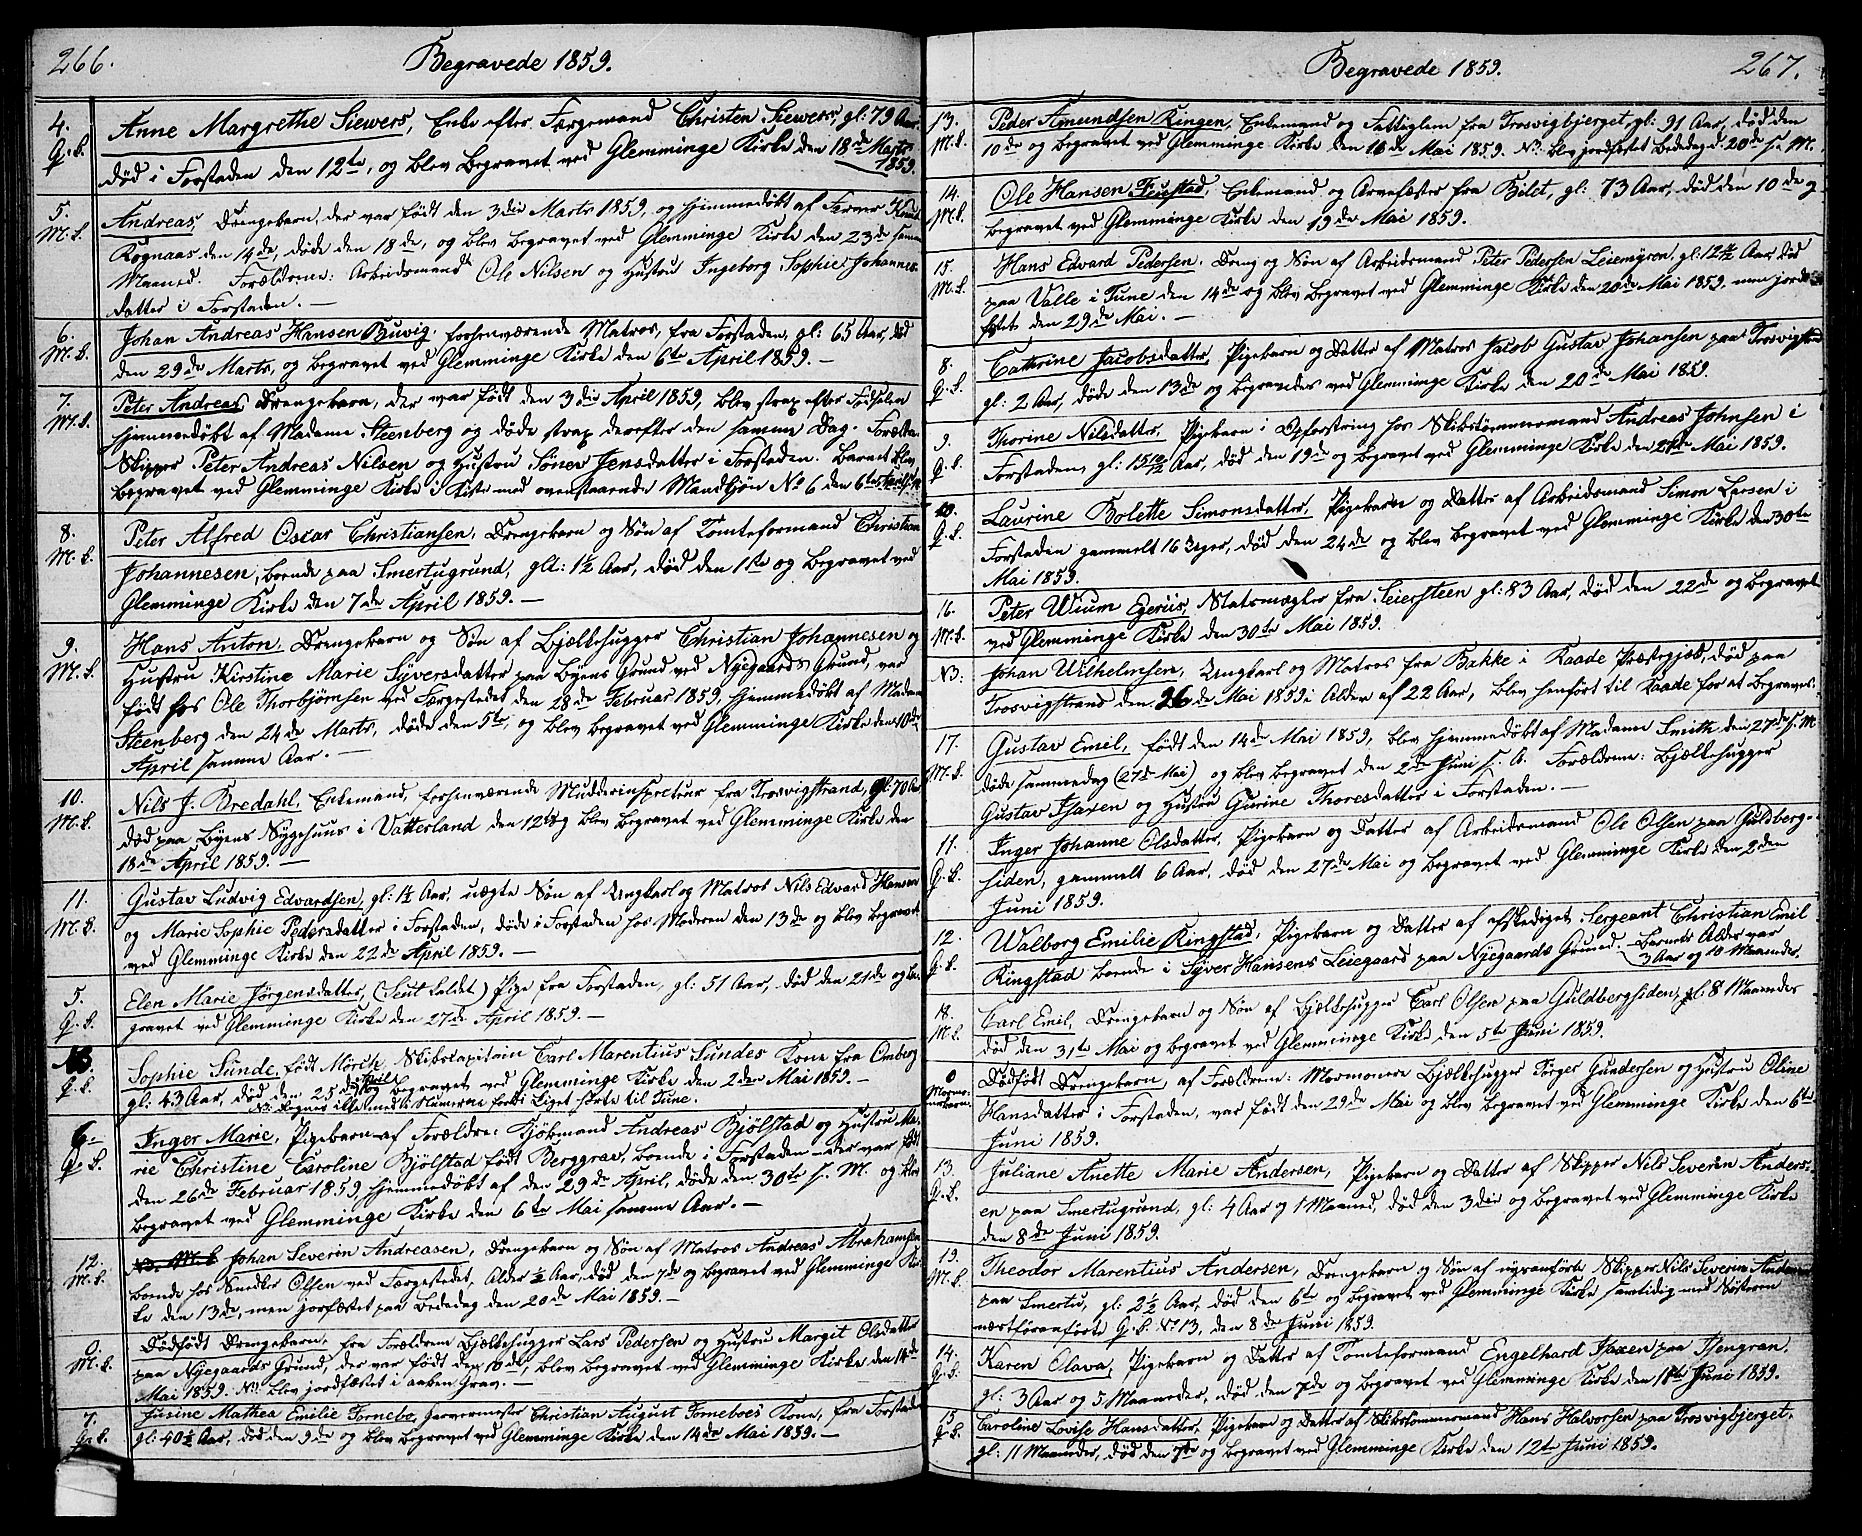 266.
Begravede 1859.
4. Q.K. Anne Margrethe Siewers, Enke efter Færgemand Christen Siewers, gl: 79 Aar.
død i Forstaden den 12te, og blev begravet ved Glemminge Kirke den 18de Marts
1859.
5. M.K. Andreas, Drengebarn, der var født den 3die Marts 1859, og hjemmedøbt af Farver Knud
Rognaas den 14de, døde den 18de, og blev begravet ved Glemminge Kirke den 23de samme
Maaned. Forældrene: Arbeidsmand Ole Nilsen og Hustru Ingeborg Sophie Johannes-
datter i Forstaden. —
6. M.K. Johan Andreas Hansen Buvig, forhenværende Matros, fra Forstaden, gl: 65 Aar, død
den 29de Marts, og begravet ved Glemminge Kirke den 6te April 1859. —
7. M.K. Peter Andreas, Drengebarn, der var født den 3die April 1859, blev strax efter Fødselen
hjemmedøbt af Madame Steenberg og døde strax derefter den samme Dag. Forældre
Skipper Peter Andreas Nilsen og Hustru Sønev Jensdatter i Forstaden. Barnet blev
begravet ved Glemminge Kirke i Kiste med ovenstaaende Mandkjøn No 6 den 6te April 1859
8. M.K. Peter Alfred Oscar Christiansen, Drengebarn og Søn af Tomteformand Christian
Johannesen, boende paa Smertugrund, gl: 1½ Aar, død den 1ste og begravet ved
Glemminge Kirke den 7de April 1859. —
9. M.K. Hans Anton, Drengebarn og Søn af Bjælkehugger Christian Johannesen og
Hustru Kirstine Marie Syversdatter paa Byens Grund ved Nyegaards Grund, var
født hos Ole Thorbjørnsen ved Færgestedet den 28de Februar 1859, hjemmedøbt af Madame
Steenberg den 24de Marts, døde den 5te, og blev begravet ved Glemminge Kirke den 10de
April samme Aar. —
10. M.K. Nils J. Bredahl, Enkemand, forhenværende Mudderinspecteur fra Trosvigstrand, gl: 70 Aar
død paa Byens Sygehuus i Vatterland den 12te og blev begravet ved Glemminge Kirke den
18de April 1859. —
11. M.K. Gustav Ludvig Edvardsen, gl: 1¼ Aar, uægte Søn af Ungkarl og Matros Nils Edvard Hansen
og Marie Sophie Pedersdatter i Forstaden, døde i Forstaden hos Moderen den 13de og blev begravet
ved Glemminge Kirke den 22de April 1859. —
5. Q.K. Elen Marie Jørgensdatter, (Seut kaldet) Pige fra Forstaden, gl: 51 Aar, død den 21de og be-
gravet ved Glemminge Kirke den 27de April 1859. —
Q.K. Sophie Sunde, født Mørch, Skibscapitain Carl Marentius Sundes Kone fra Omberg
gl: 43 Aar, død den 25de April og begravet ved Glemminge Kirke den 2den Mai 1859. —
NB. Regnes ikke med i Numerne fordi Liget hørte til Tune.
6. Q.K. Inger Marie, Pigebarn af Forældre: Kjøbmand Andreas Bjølstad og Hustru Ma-
rie Christine Caroline Bjølstad født Berggrav, boende i Forstaden – der var født
den 26de Februar 1859, hjemmedøbt af den 29de April, døde den 30te s. M. og blev
begravet ved Glemminge Kirke den 6te Mai samme Aar. —
12. M.K. Johan Severin Andreasen, Drengebarn og Søn af Matros Andreas Abrahamsen
boende hos Snedker Olsen ved Færgestedet, Alder ½ Aar, død den 7de og begravet ved Glemminge Kir-
ke den 13de, men jordfæstet paa Bededag den 20de Mai 1859. —
0. M.K. Dødfødt Drengebarn, fra Forældrene Bjælkehugger Lars Pedersen og Hustru Margit Olsdatter
paa Nyegaards Grund, der var født den 10de, blev begravet ved Glemminge Kirke den 14de
Mai 1859. NB. blev jordfæstet i aaben Grav. —
7. Q.K. Jusine Mathea Emilie Tornebo, Farvermester Christian August Torneboes Kone, fra Forstaden
gl: 40½ Aar, død den 9de og blev begravet ved Glemminge Kirke den 14de Mai 1859. —
Begravede 1859.
267.
13. M.K. Peder Amundsen Ringen, Enkemand og Fattiglem fra Trosvigbjerget, gl: 91 Aar, død den
10de og begravet ved Glemminge Kirke den 16de Mai 1859. NB. blev jordfæstet Bededag d: 20de s. M.
14. M.K. Ole Hansen Feustad, Enkemand og Arvefæster fra Bilet, gl: 73 Aar, død den 10de og
begravet ved Glemminge Kirke den 19de Mai 1859.
15. M.K. Hans Edvard Pedersen, Dreng og Søn af Arbeidsmand Peter Pedersen Leiemyren, gl: 12 Aar, død
paa Valle i Tune den 14de og blev begravet ved Glemminge Kirke den 20de Mai 1859. men jord-
fæstet den 29de Mai. —
8. Q.K. Cathrine Jacobsdatter, Pigebarn og Datter af Matros Jacob Gustav Johansen paa Trosvigstrand
gl: 2 Aar, døde den 13de og begravedes ved Glemminge Kirke den 20de Mai 1859.
9. Q.K. Thorine Nilsdatter, Pigebarn i Opfostring hos Skibstømmermand Andreas Johnsen i
Forstaden, gl: 15 10/12 Aar, død den 19de og begravet ved Glemminge Kirke den 24de Mai 1859.
10. Q.K. Laurine Bolette Simonsdatter, Pigebarn og Datter af Arbeidsmand Simon Larsen i
Forstaden gammelt 16 Uger, død den 24de og blev begravet ved Glemminge Kirke den 30te
Mai 1859.
16. M.K. Peter Wium Egerüs, Statsmægler fra Seiersteen gl: 83 Aar, død den 22de og begravet
ved Glemminge Kirke den 30te Mai 1859.
NB: Johan Wilhelmsen, Ungkarl og Matros fra Bakke i Raade Præstegjeld, død paa
Trosvigstrand den 26de Mai 1859 i Alder af 22 Aar, blev henført til Raade for at begraves.
17. M.K. Gustav Emil, født den 14de Mai 1859, blev hjemmedøbt af Madame Smith den 27de s. M
døde sammedag (27de Mai) og blev begravet den 2den Juni s. A. Forældrene: Bjælkehugger
Gustav Isaxen og Hustru Gurine Thoresdatter i Forstaden. —
11. Q.K. Inger Johanne Olsdatter, Pigebarn og Datter af Arbeidsmand Ole Olsen paa Guldberg-
siden, gammelt 6 Aar, død den 27de Mai og begravet ved Glemminge Kirke den 2den
Juni 1859.
12. Q.K. Walborg Emilie Ringstad, Pigebarn og Datter af afskediget Sergeant Christian Emil
Ringstad boende i Syver Hansens Leiegaard paa Nyegaards Grund. Barnets Alder var
3 Aar og 10 Maaneder.
18. M.K. Carl Emil, Drengebarn og Søn af Bjælkehugger Carl Olsen paa Guldbergsiden, gl: 8 Maaneder
død den 31te Mai og begravet ved Glemminge Kirke den 5te Juni 1859.
0 Dødfødt Drengebarn, af Forældrene: Mormonere Bjælkehugger Torger Gundersen og Hustru Oline
Hansdatter i Forstaden, var født den 29de Mai og blev begravet ved Glemminge Kirke den 6te
Juni 1859.
13. Q.K. Juliane Anette Marie Andersen, Pigebarn og Datter af Skipper Nils Severin Anders-
en paa Smertugrund, gl: 4 Aar og 1 Maaned, død den 3die og begravet ved Glemminge Kirke
den 8de Juni 1859.
19. M.K. Theodor Marentius Andersen, Drengebarn og Søn af nysanførte Skipper Nils Severin Andersen
paa Smertu, gl: 2½ Aar, død den 6te og begravet ved Glemminge Kirke samtidig med Søsteren
næstforanførte Q.K. No 13, den 8de Juni 1859.
14. Q.K. Karen Olava, Pigebarn og Datter af Tomteformand Engelhard Isaxen paa Isengran.
gl: 3 Aar og 5 Maaneder, død den 7de og begravet ved Glemminge Kirke den 11te Juni 1859.
15 Q.K. Caroline Lovise Hansdatter, Pigebarn og Datter af Skibstømmermand Hans Halvorsen paa Trosvigbjerget,
gl: 11 Maaneder, død den 7de og begravet ved Glemminge Kirke den 12te Juni 1859.